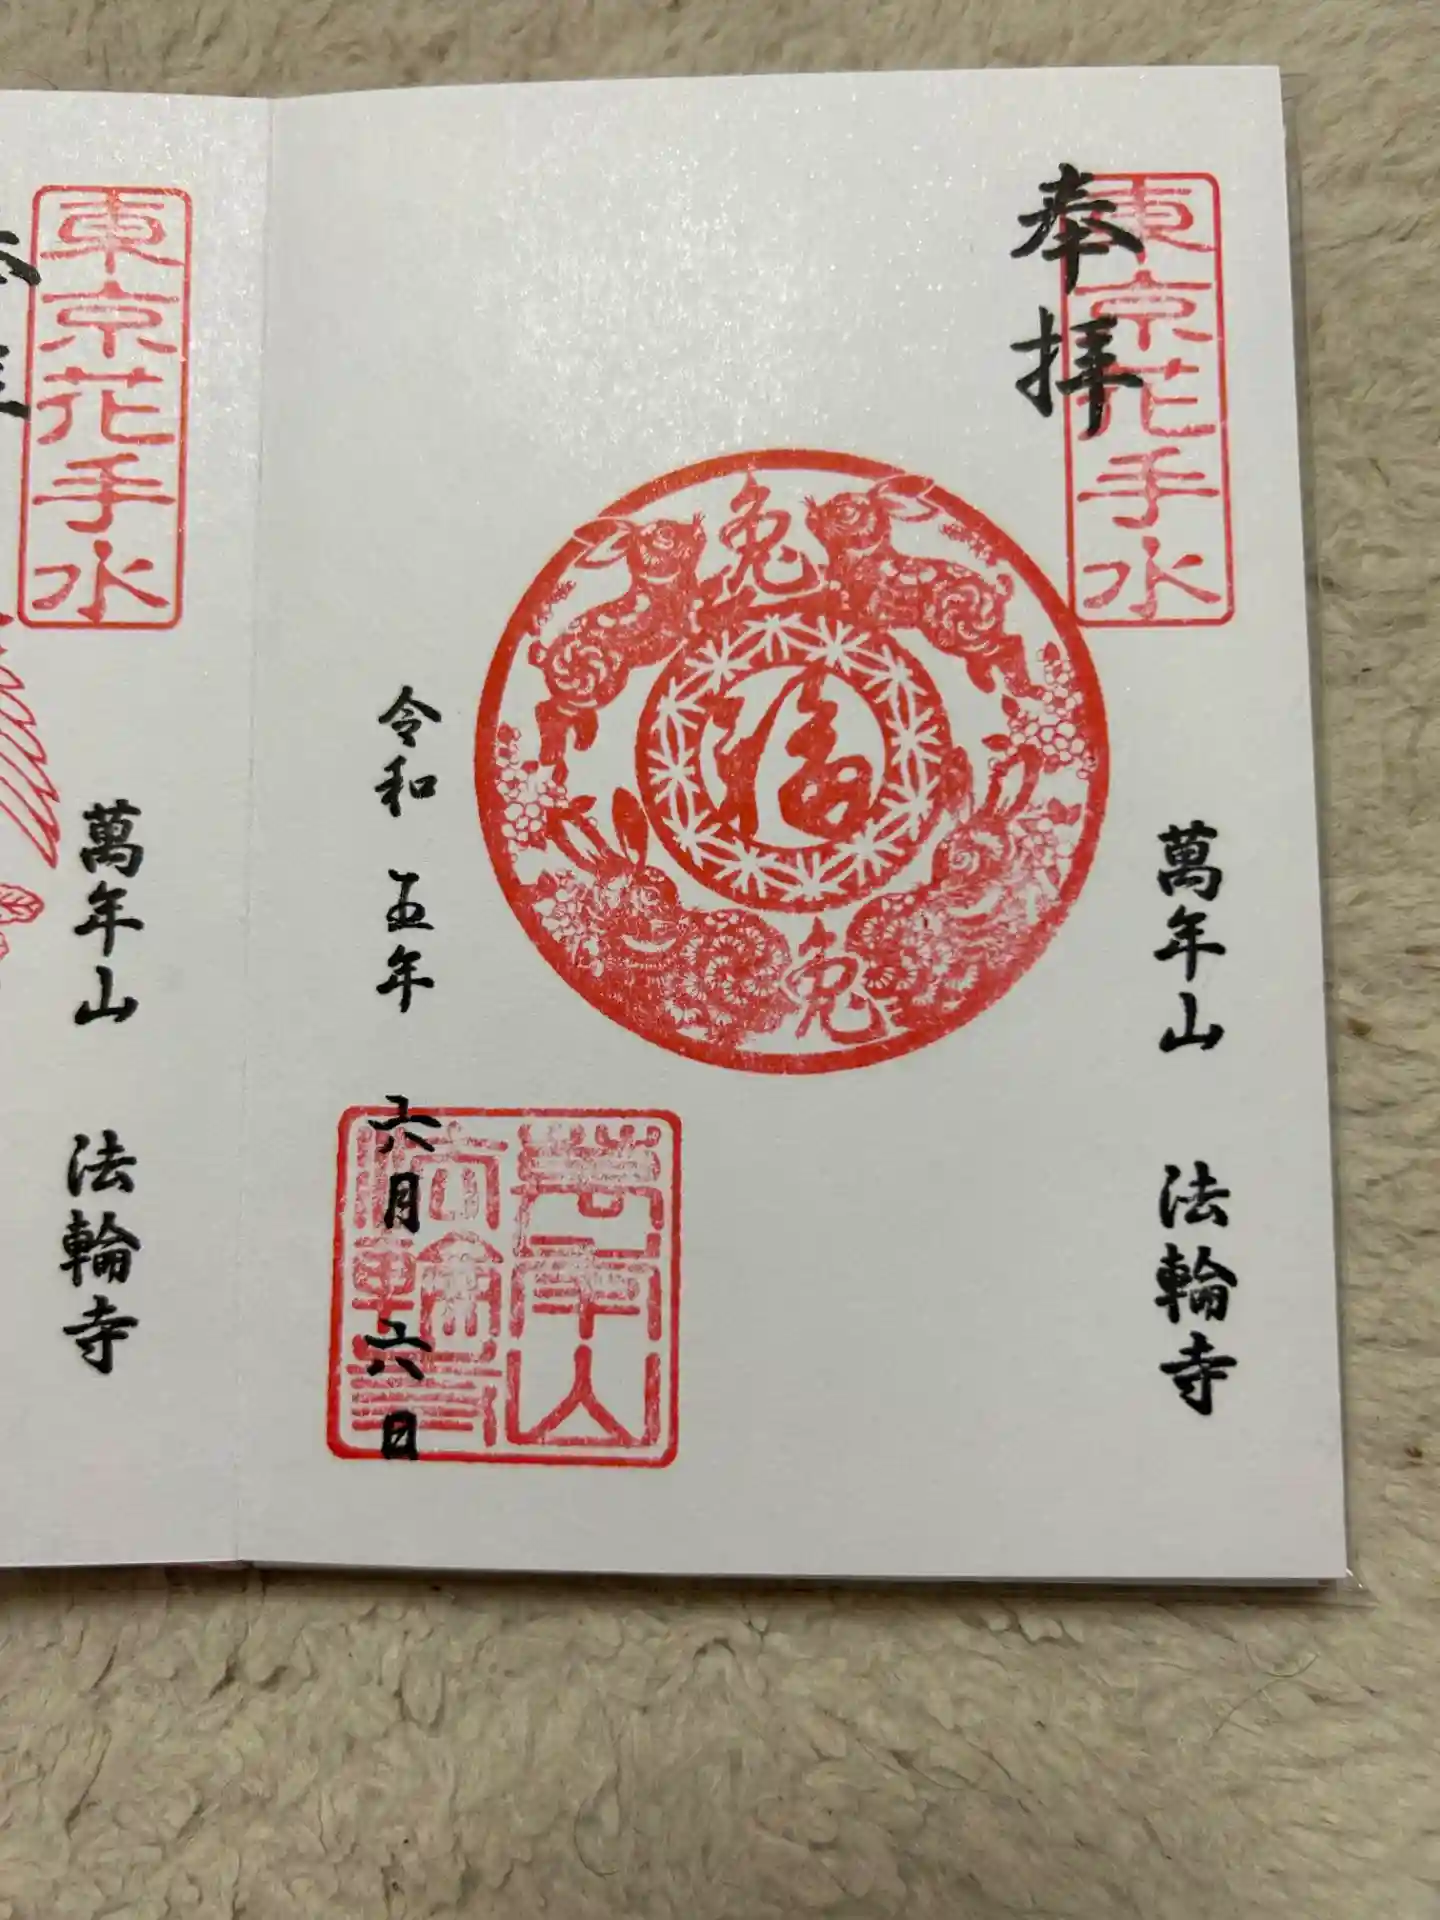 奉拝
東京花手水
萬年山 法輪寺
兔
福
兔
萬年山
法輪寺
令和 五年 六月 六日
東京花手水
萬年山 法輪寺